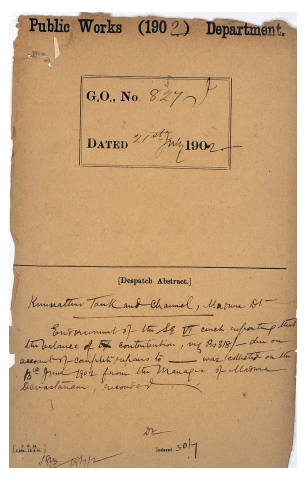 Public Works (1902) Department.
G.O., No. 827
DATED 21st July 1902
[Despatch Abstract.]
Tank and Channel, Madura Dt
Endorsement of the SE VI circle, reporting that
the balance of contribution, viz Rs 818/- due on
account of complete repairs to was collected on the
June 1902 from the Manager of Madura
Devastanam, recorded
Indexed 30/7